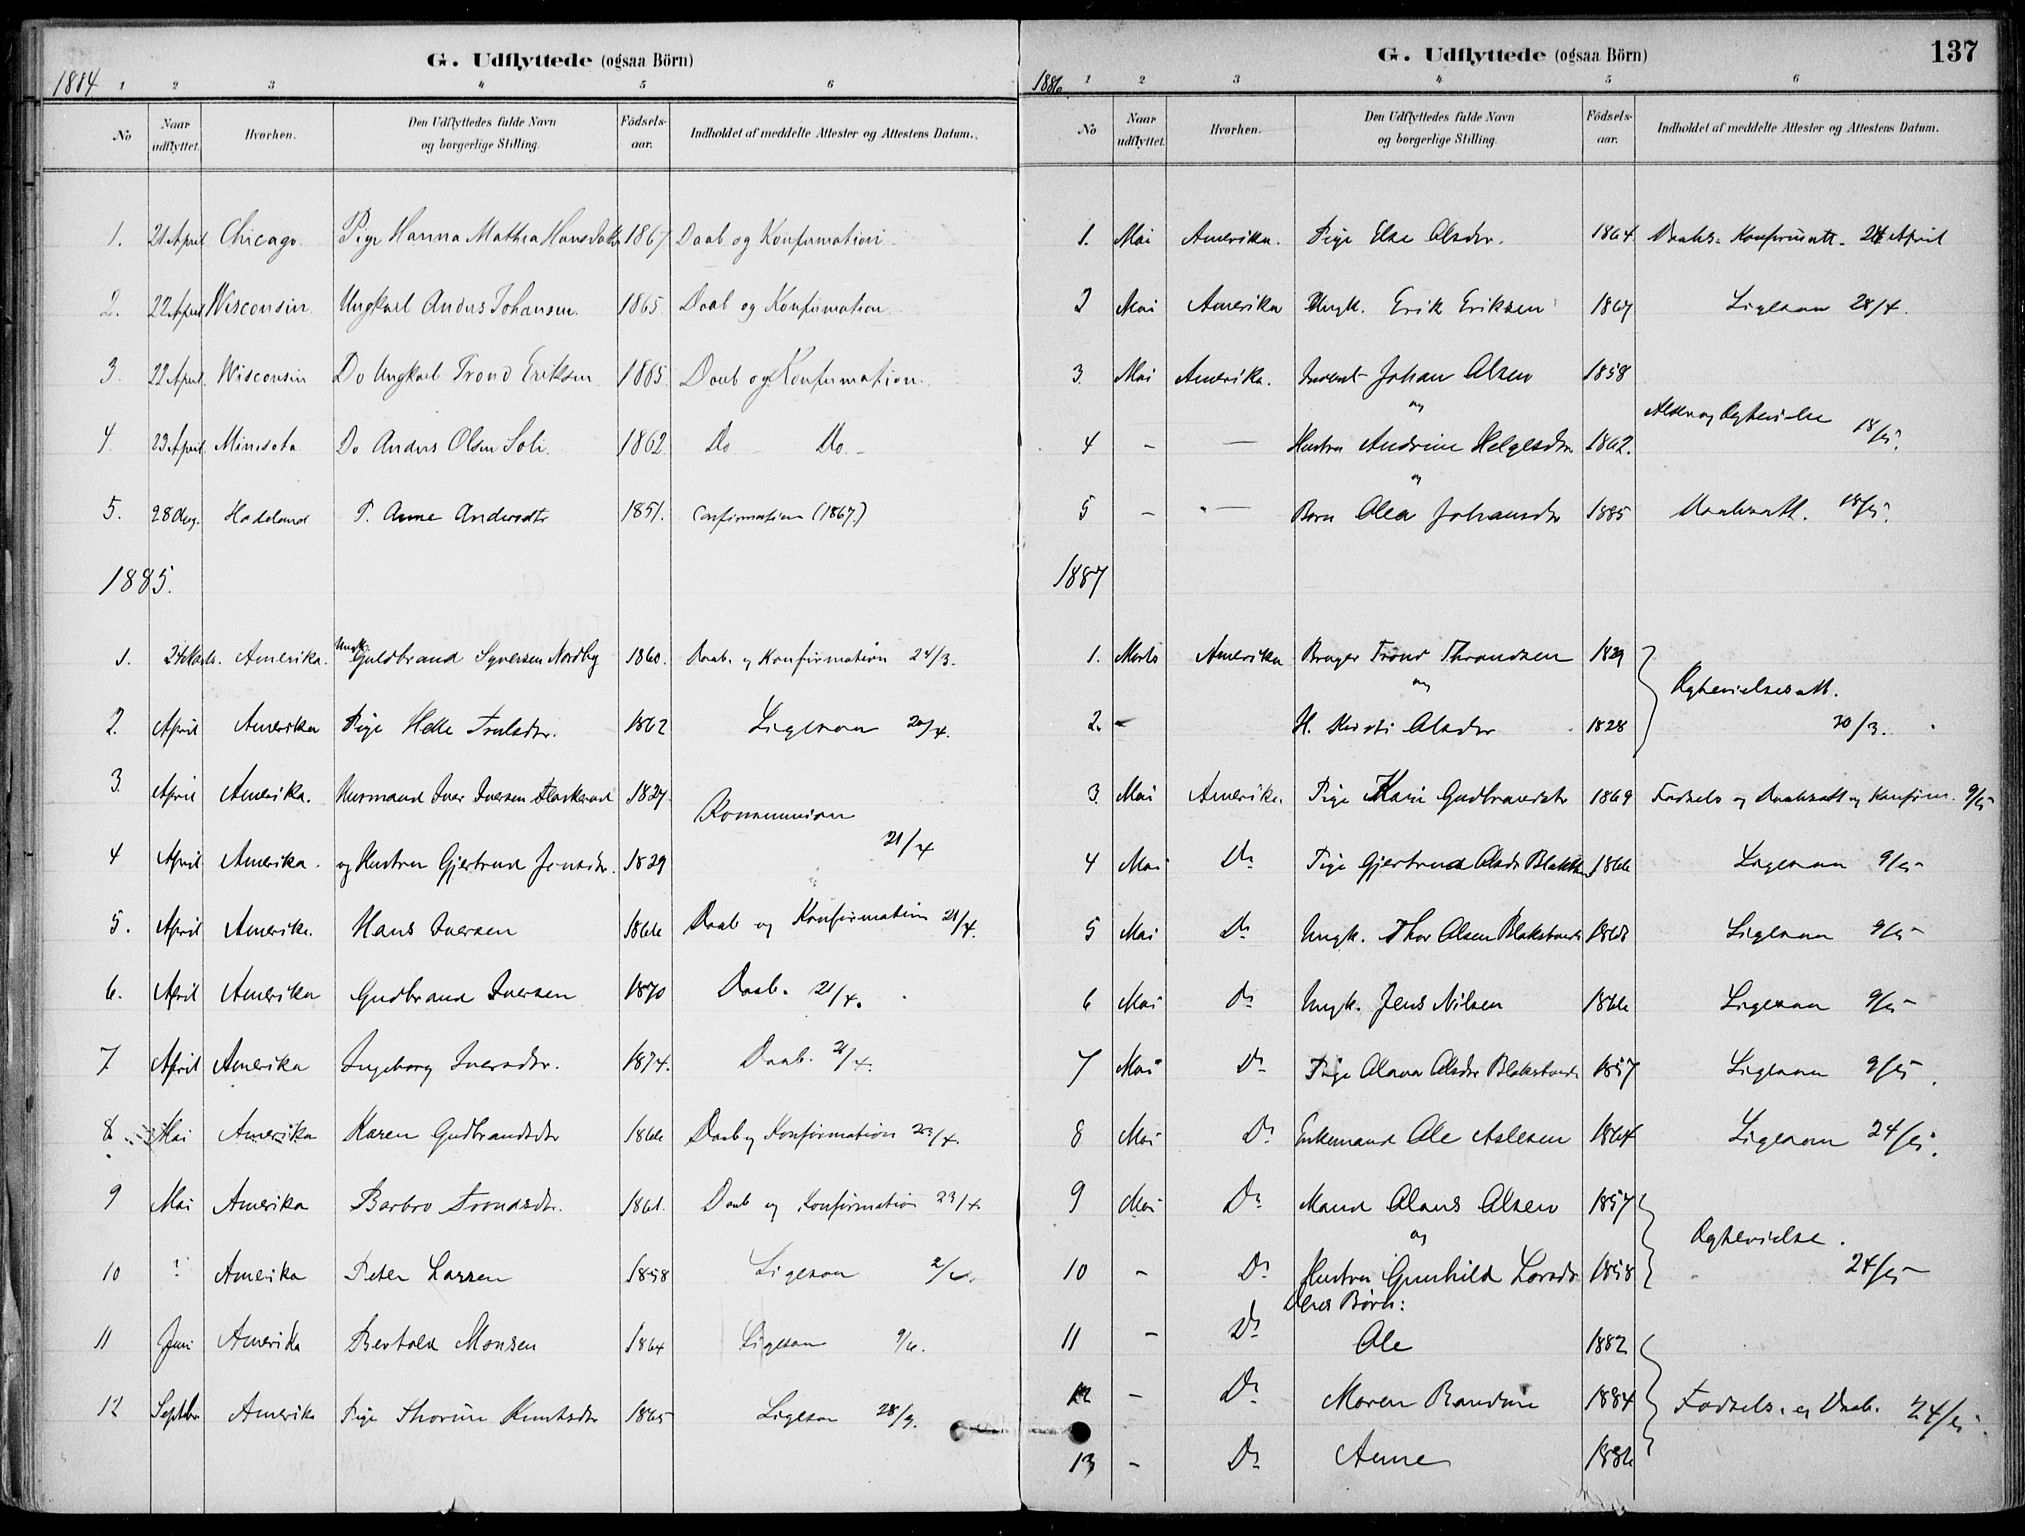 G. Udflyttede (ogsaa Börn)
1884 1 2 3 4 5 6
No Naar udflyttet. Hvorhen. Den Udflyttedes fulde Navn og borgerlige Stilling. Födsels-aar. Indholdet af meddelte Attester og Attestens Datum.
1. 21 April Chicago. Pige Hanna Mathea Hansdatter 1867 Daab og Konfirmation
2. 22 April Wisconsin. Ungkarl Anders Johansen. 1865. Daab og Konfirmation
3. 22 April. Wisconsin Do Ungkarl Trond Eriksen 1865. Daab og Konfirmation.
4. 23 April. Minesota Do Anders Olsen Soli. 1862 Do Do
5. 28 Aug. Hadeland P. Anne Andersdtr 1851. Confirmation (1867.)
1885.
1. 24 Marts. Amerika. Ungk. Guldbrand Syversen Nordby 1860. Daab. og Konfirmation 24/3.
2. April Amerika Pige Helle 1862 Ligesaa 20/4.
3. April Amerika. Husmand Iver Iversen 1827
Kommunion 21/4
4 April Amerika. og Hustru Gjertrud Jensdtr. 1829
5. April Amerika. Hans Iversen 1866 Daab og Konfirmation 21/4.
6. April Amerika Gudbrand Iversen 1870 Daab. 21/4.
7 April Amerika Ingeborg Iversdtr. 1874. Daab. 21/4.
8 Mai Amerika Karen Gudbrandsdtr 1866 Daab og Konfirmation 23/4.
9 Mai Amerika Barbro Trondsdtr. 1861. Daab og Konfirmation 23/4.
10 ? Amerika Peter Larsen 1858 Ligesaa 2/6.
11 Juni Amerika Berthold Monsen 1864 Ligesaa 9/6.
12 Septbr Amerika Pige Thorine Knutsdtr 1865 Ligesaa 28/9.
G. Udflyttede (ogsaa Börn) 137
1886. 1 2 3 4 5 6
No Naar udflyttet. Hvorhen. Den Udflyttedes fulde Navn og borgerlige Stilling. Födsels-aar. Indholdet af meddelte Attester og Attestens Datum.
1. Mai Amerika. Pige Else Olsdtr. 1864. Daabs- Konfirmatt. 24 April
2 Mai Amerika Ungk. Erik Eriksen 1867 Ligesaa 28/4.
3. Mai Amerika. Johan Olsen 1858
og
Alder og Ægtevielse 18/5.
4 – – Hustru Andrine Helgesdtr 1862.
og
5 – – Barn Olea Johansdtr 1885 Daabsatt. 18/5.
1887
1. Marts Amerika Bruger Trond Throndsen 1829
og
Ægtevielsesatt. 30/3.
2. – H. Kirsti Olsdtr 1828
3. Mai Amerika. Pige Kari Gudbrandsdtr 1869 Fødsels og Daabsatt og Konfirm. 9/5
4 Mai Do Pige Gjertrud Olsdtr 1866 Ligesaa 9/5
5 Mai Do Ungk. Thor Olsen 1868 Ligesaa 9/5
6 Mai do Ungk. Jens Nilsen 1866 Ligesaa 9/5
7 Mai Do Pige Olava Olsdtr 1857 Ligesaa 9/5.
8 Mai Do Enkemand Ole Aslesen 1864 Ligesaa 24/5.
9 Mai Do Mand Olaus Olsen 1857
og
Ægtevielse. 24/5
10 – Do Hustru Gunhild Larsdtr 1858
Deres Børn:
11 – Do Ole 1882
12 – Do Maren Randine 1884 Fødsels. og Daab. 24/5.
13 – Do Anne 1886